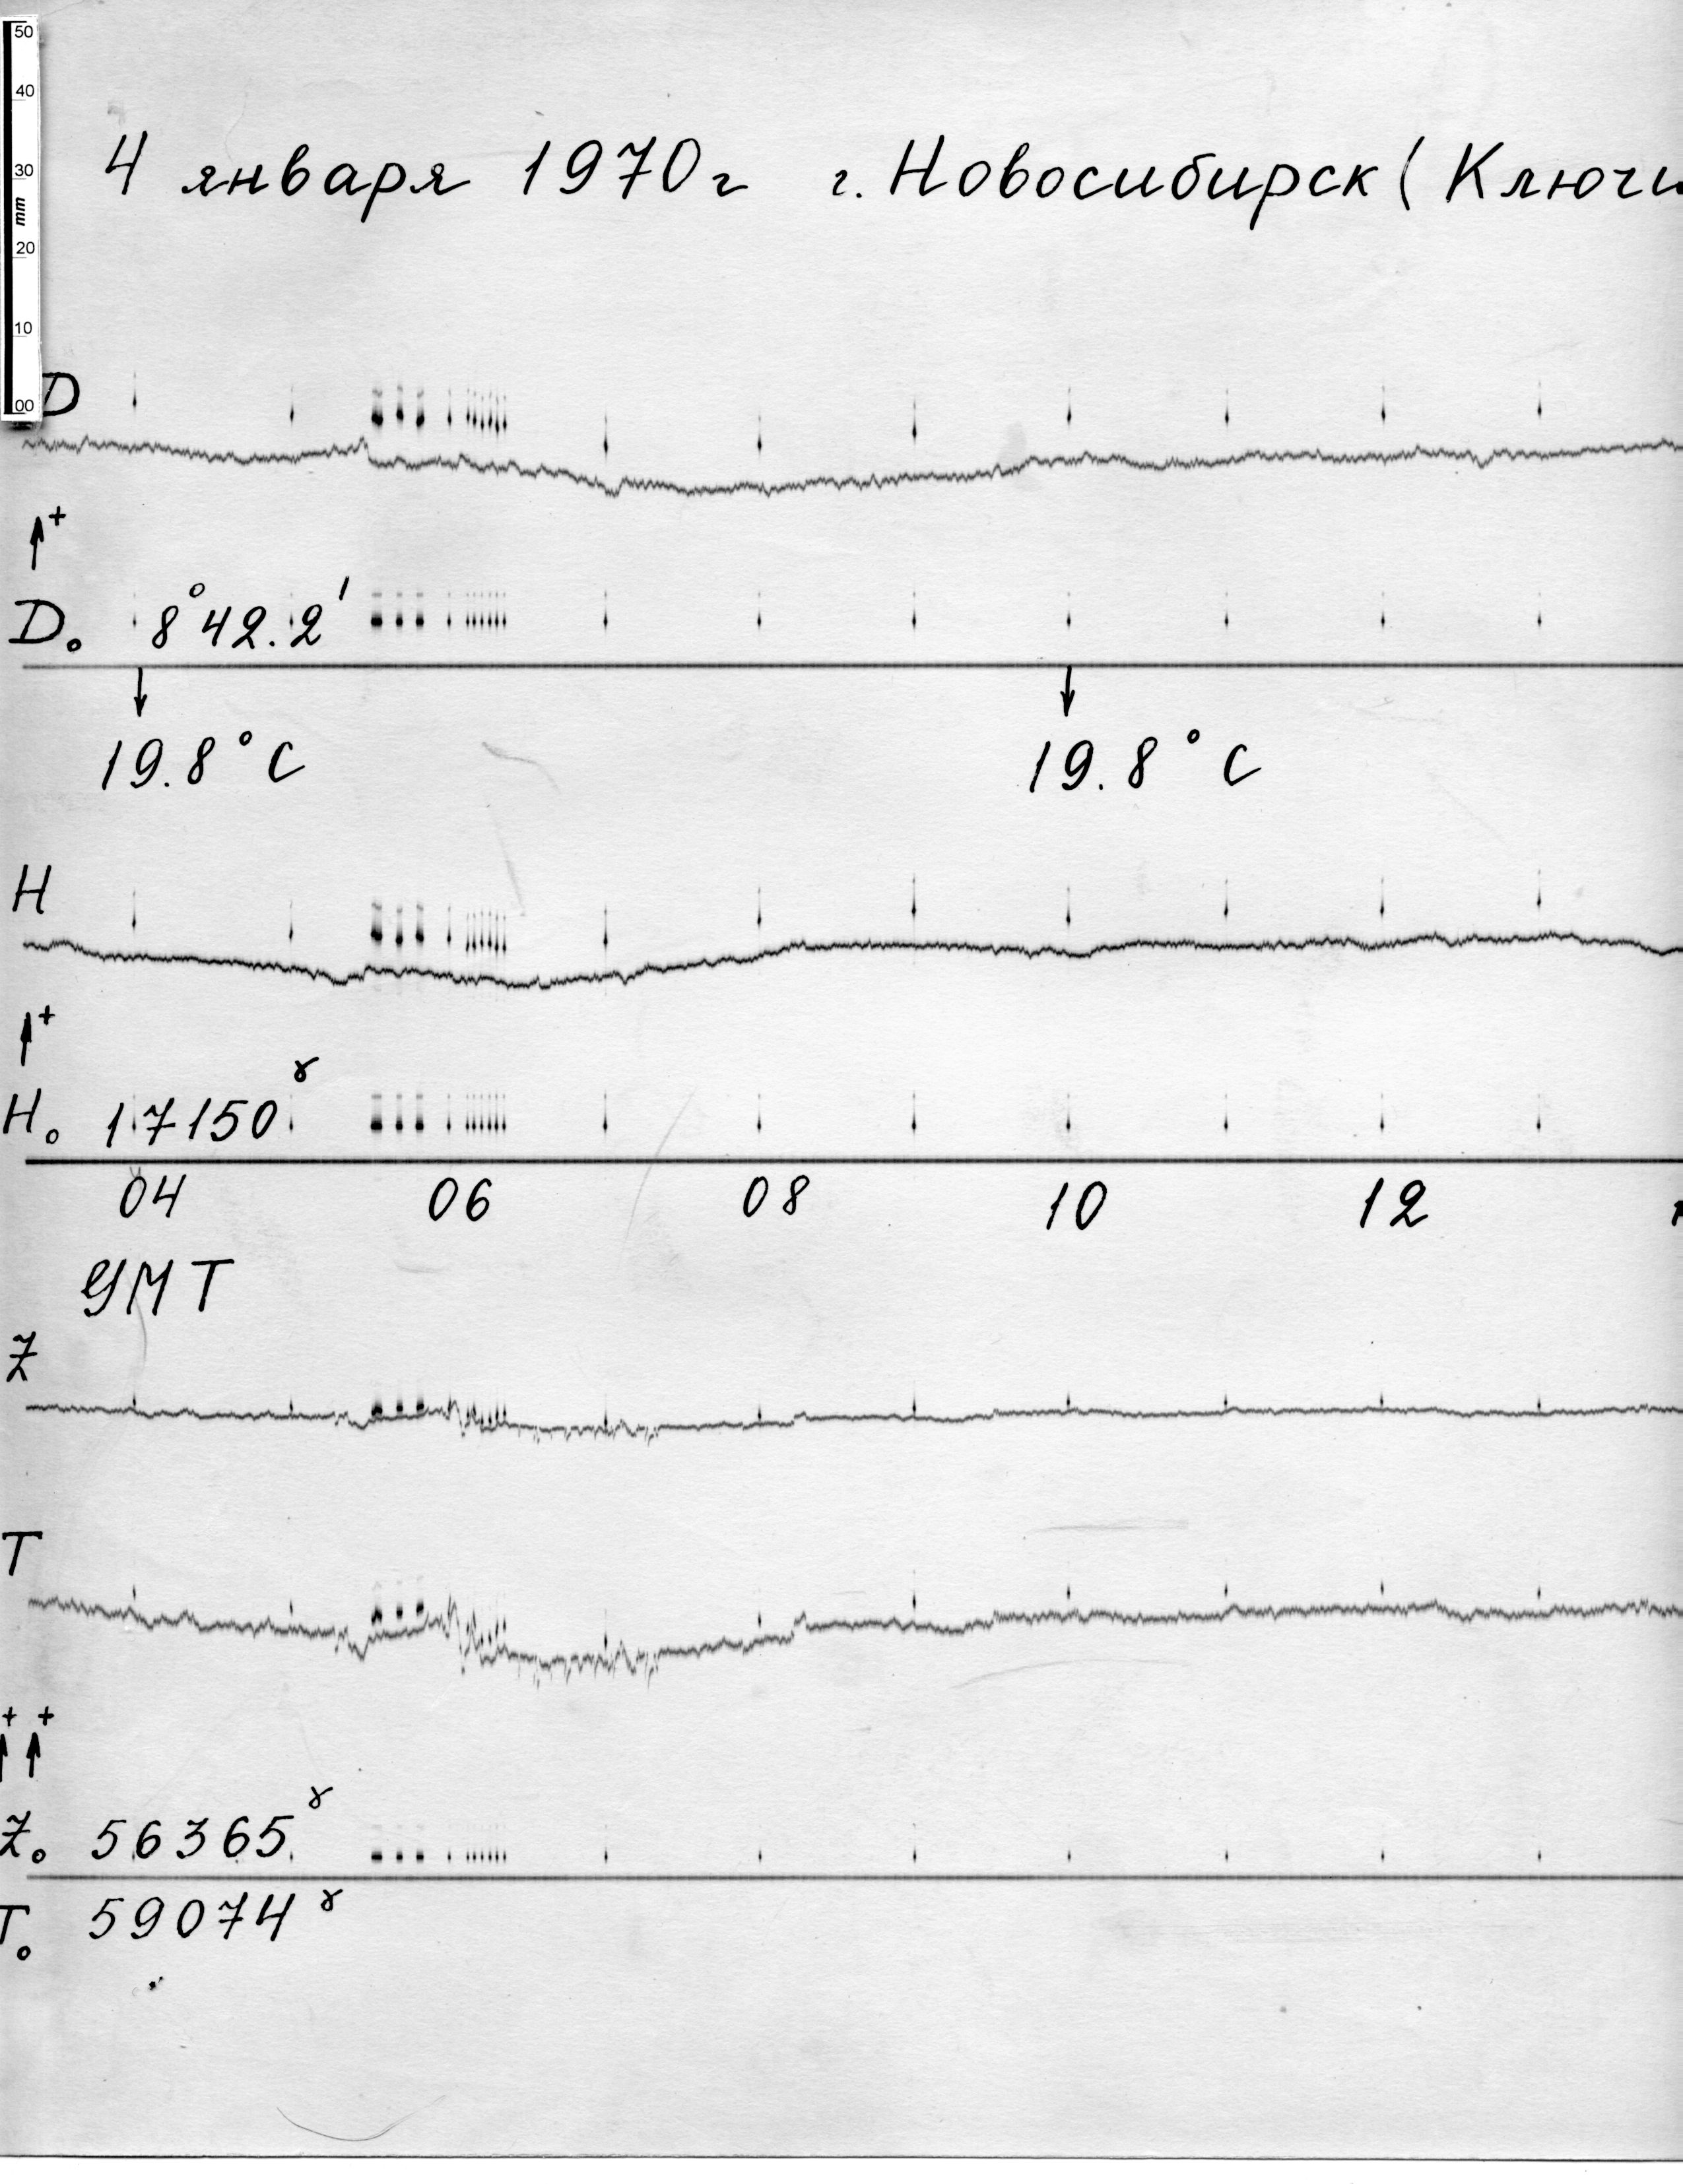 50
40
30
mm
20
10
00
4 января 1970г г. Новосибирск (Ключи
D
+
D₀ 8°42.2′
19.8°C 19.8°C
H
+
H₀ 17150ˠ
04 06 08 10 12
УМТ
Z
T
+ +
Z₀ 56365ˠ
T₀ 59074ˠ